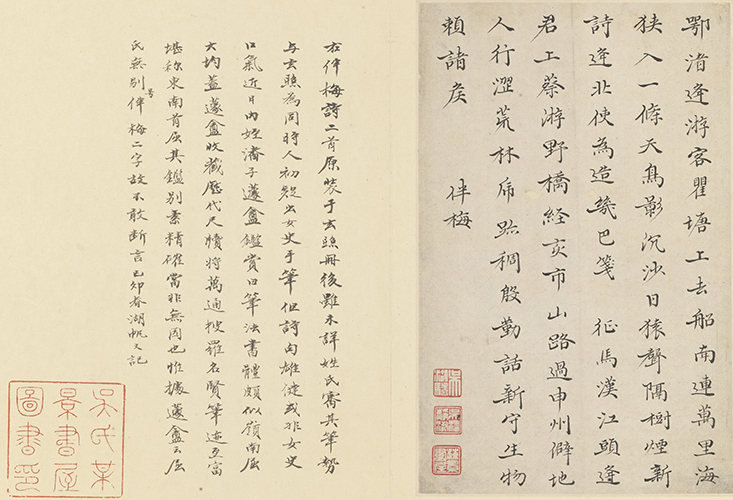 鄂渚逢游客瞿塘上去船南連萬里海
狹入一條天鳥影沉沙日猿聲隔樹煙新
詩逢北使為造幾巴箋 征馬漢江頭逢
君上蔡游野橋経亥市山路過申州僻地
人行澀荒林虎跡稠殷勤話新守生物
賴諸矦 伴梅
右伴梅詩二首原裝于玄照冊後雖未詳姓氏審其筆勢
与玄照為同時人初疑出女史手筆但詩句雄健或非女史
口氣近日內姪潘子蘧盦鑑賞曰筆法書體頗似嶺南屈
大均蓋蘧盦收藏歷代尺牘將萬通搜羅名賢筆迹至富
堪称東南首屈其鑑別素精確當非無因也惟據蘧盦云屈
氏無別号伴梅二字故不敢斷言己卯春湖帆又記
吳氏某
景書屋
圖書印